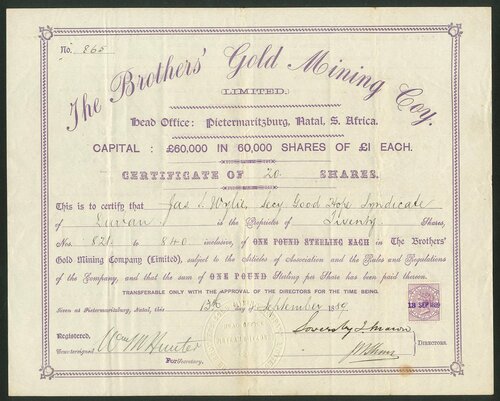 No. 265
The Brothers' Gold Mining Coy.
LIMITED.
Head Office: Pietermaritzburg, Natal, S. Africa.
CAPITAL : £60,000 IN 60,000 SHARES OF £1 EACH.
CERTIFICATE OF 20 SHARES.
This is to certify that Jas S. Wylie, Secy Good Hope Syndicate
of is the Proprietor of Twenty Shares,
Nos. 821 to 840 inclusive, of ONE POUND STERLING EACH in The Brothers'
Gold Mining Company (Limited), subject to the Articles of Association and the Rules and Regulations
of the Company, and that the sum of ONE POUND Sterling per Share has been paid thereon.
TRANSFERABLE ONLY WITH THE APPROVAL OF THE DIRECTORS FOR THE TIME BEING.
Given at Pietermaritzburg, Natal, this 13th day of September 1889.
13 SEP 1889
Registered,
Countersigned Wm M Hunter
For Secretary.
DIRECTORS.